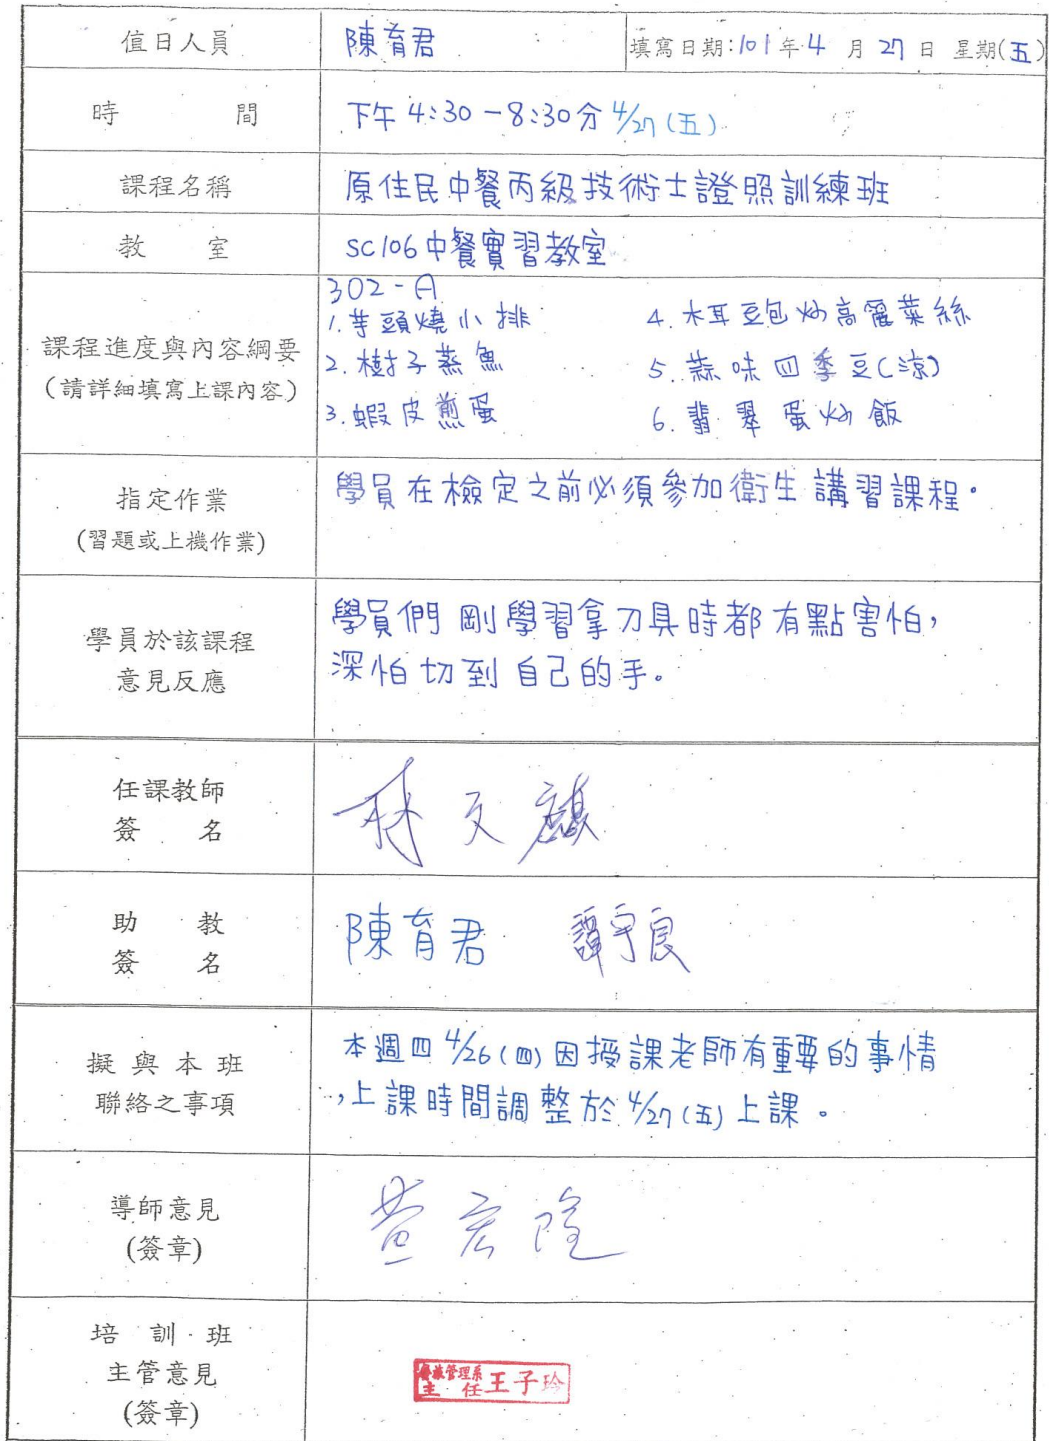 值日人員 陳育君 填寫日期:101年4月27日 星期(五)
時 間 下午4:30-8:30分 4/27(五)
課程名稱 原住民中餐丙級技術士證照訓練班
教 室 SC106中餐實習教室
課程進度與內容綱要
(請詳細填寫上課內容)
302-A
1.芋頭燒小排
2.樹子蒸魚
3.蝦皮煎蛋
4.木耳豆包炒高麗菜絲
5.蒜味四季豆(涼)
6.翡翠蛋炒飯
指定作業
(習題或上機作業)
學員在檢定之前必須參加衛生講習課程。
學員於該課程
意見反應
學員們剛學習拿刀具時都有點害怕,
深怕切到自己的手。
任課教師
簽 名
林文
助 教
簽 名
陳育君 譚守良
擬與本班
聯絡之事項
本週四4/26(四)因授課老師有重要的事情
,上課時間調整於4/27(五)上課。
導師意見
(簽章)
黃宏隆
培 訓 班
主管意見
(簽章)
餐旅管理系
主 任 王子玲